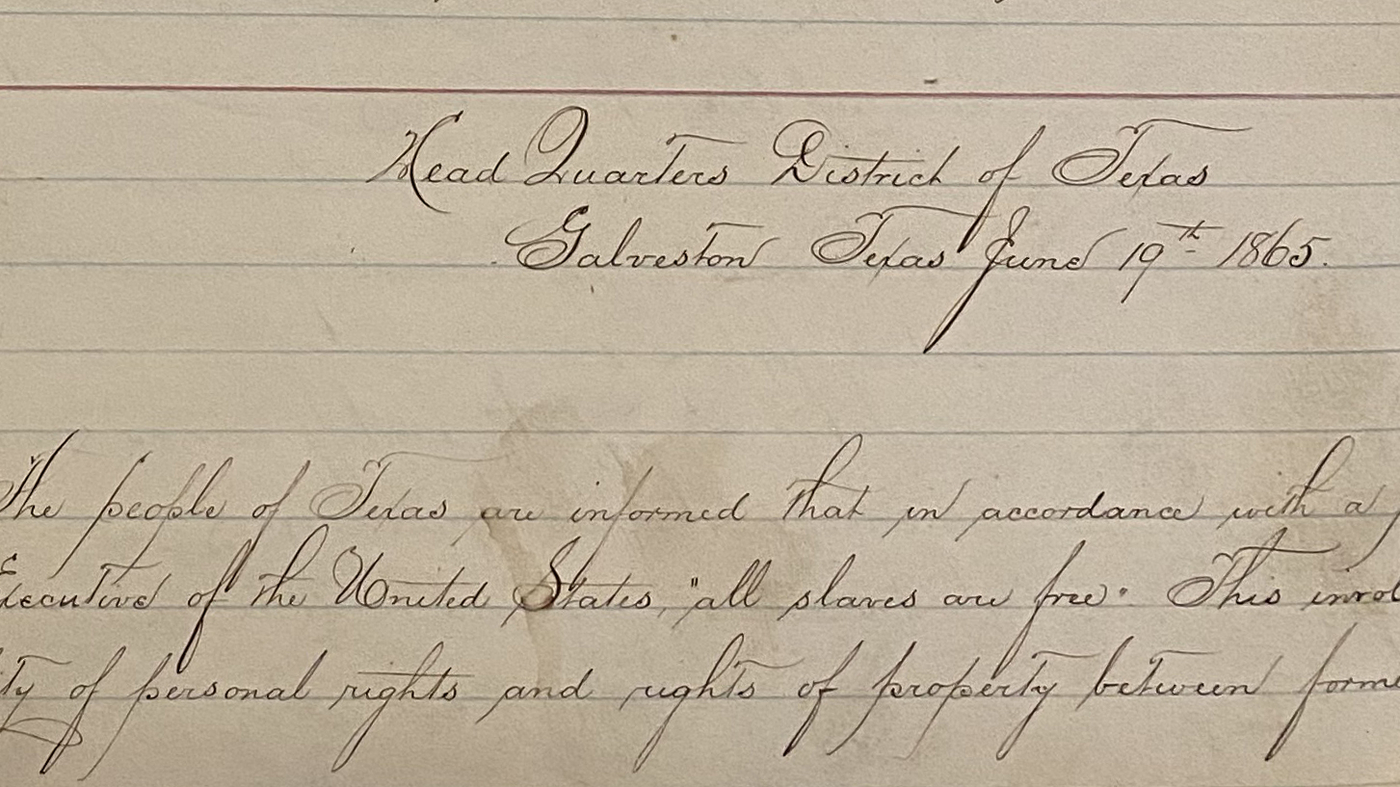 Head Quarters District of Texas
Galveston Texas June 19th 1865.
The people of Texas are informed that in accordance with a
Executive of the United States, "all slaves are free". This invol
ty of personal rights and rights of property between forme